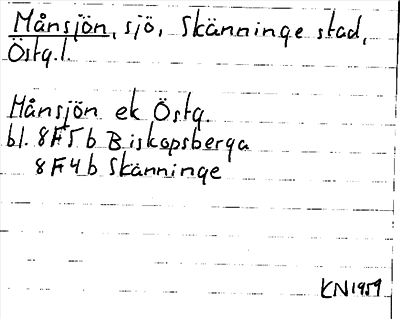 Månsjön, sjö, Skänninge stad,
Östg.l.
Månsjön ek Östg.
bl. 8F5b Biskopsberga
8F4b Skänninge
KN1959